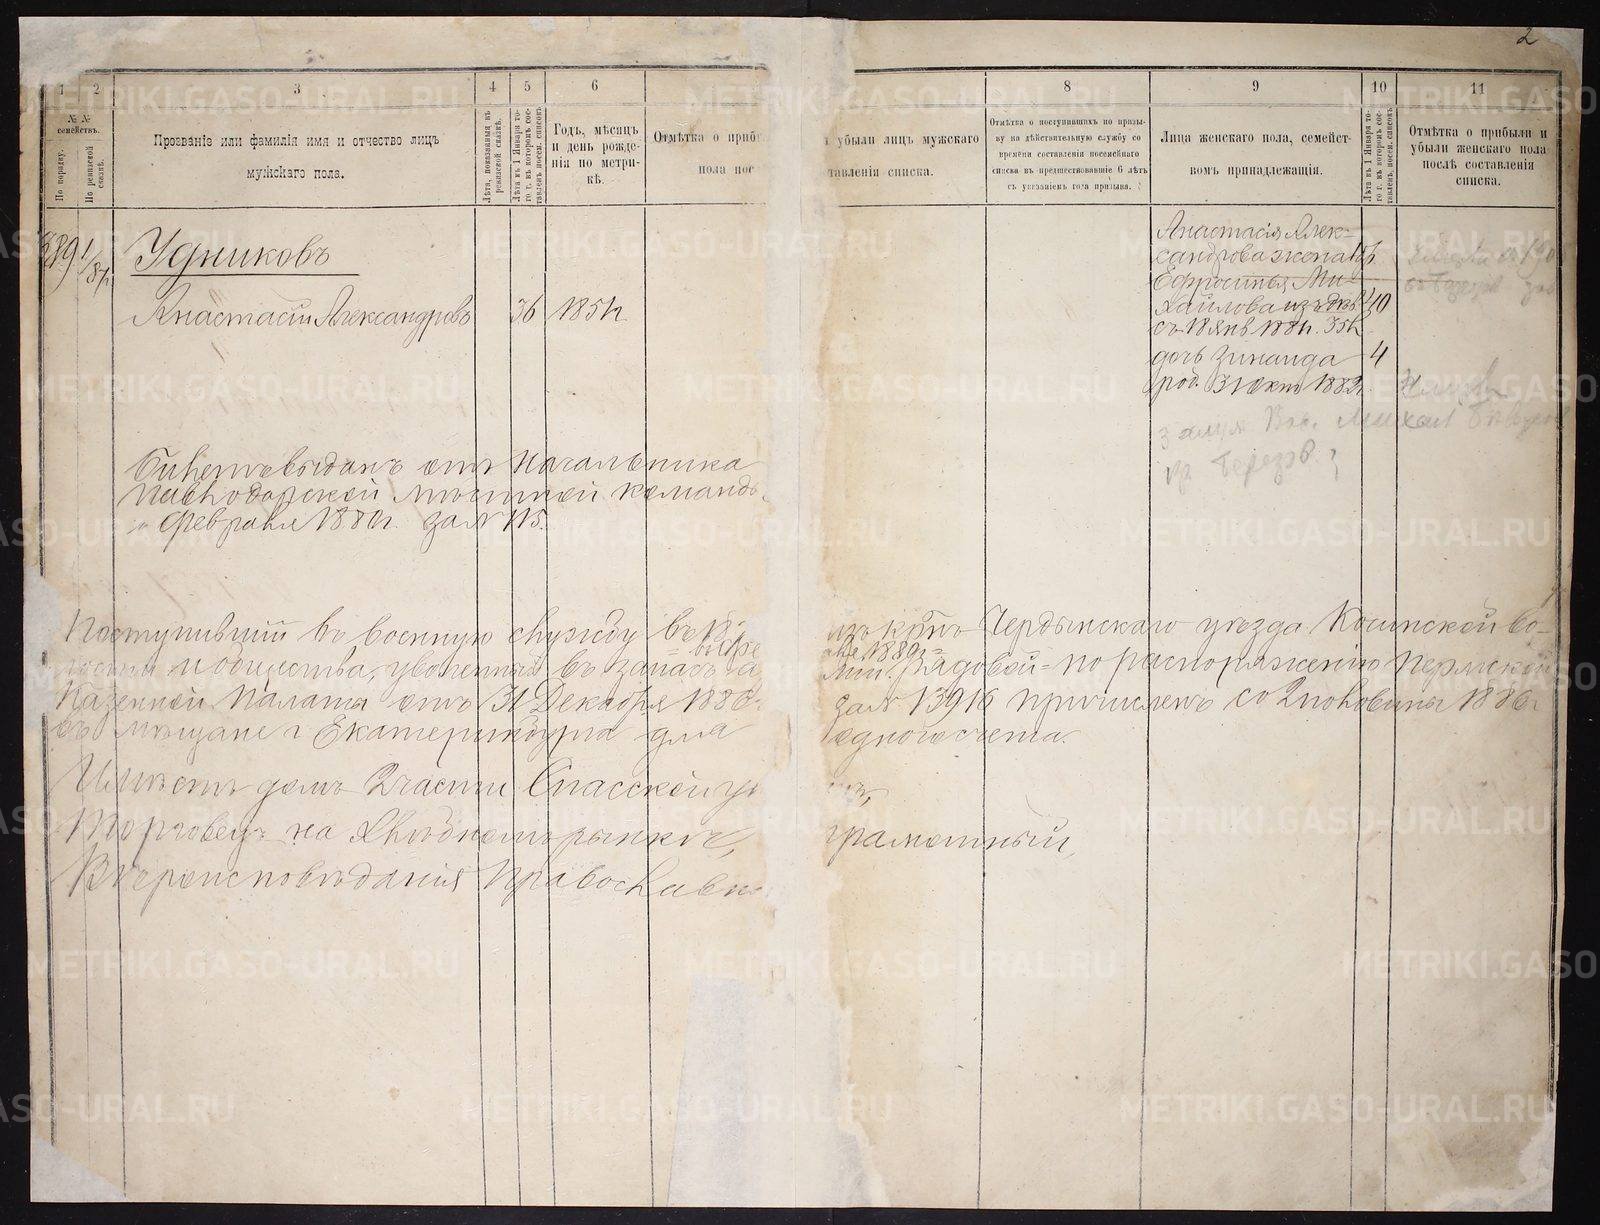 2
1 2 3 4 5 6 8 9 10 11
№ №
семействъ.
По порядку.
По ревизской
сказкѣ.
Прозваніе или фамилія имя и отчество лицъ
мужскаго пола.
Лѣта, показанныя въ
ревизской сказкѣ.
Лѣта къ 1 Января то-
го г. въ которомъ сос-
тавленъ посем. списокъ
Годъ, мѣсяцъ
и день рожде-
нія по метри-
кѣ.
Отмѣтка о приб
убыли лицъ мужскаго
пола пос
тавленія списка.
Отмѣтка о поступившихъ по призы-
ву на дѣйствительную службу со
времени составленія посемейнаго
списка въ предшествовавшіе 6 лѣтъ
съ указаніемъ года призыва.
Лица женскаго пола, семейст-
вомъ принадлежащія.
Лѣта къ 1 Января то-
го г. въ которомъ сос-
тавленъ посем. списокъ
Отмѣтка о прибыли и
убыли женскаго пола
послѣ составленія
списка.
Удниковъ
Анастасій Александровъ 36 1851г.
Анастасія Алек-
сандрова жена
Ефросинья Ми-
хайлова 40
съ 18 янв 1881г. 35л.
дочь Зинаида 4
род. 31 Окт 1882г.
Билетъ выданъ отъ Начальника
Павлодарской мѣстной команды
Февраля 1880г. за № 115.
Поступившій въ военную службу въ 18
изъ кр-нъ Чердынскаго уѣзда Косинской во-
лости и общества, уволенный въ запасъ а
рміи. Рядовой по распоряженію Пермской
Казенной Палаты отъ 31 Декабря 1886
за № 13916 причисленъ со 2 половины 1886г
въ мѣщане г Екатеринбурга для
одного счета.
Имѣетъ домъ 2 части Спасской ул
Торговецъ на Хлѣбномъ рынкѣ,
грамотный,
Вѣроисповѣданія Православн